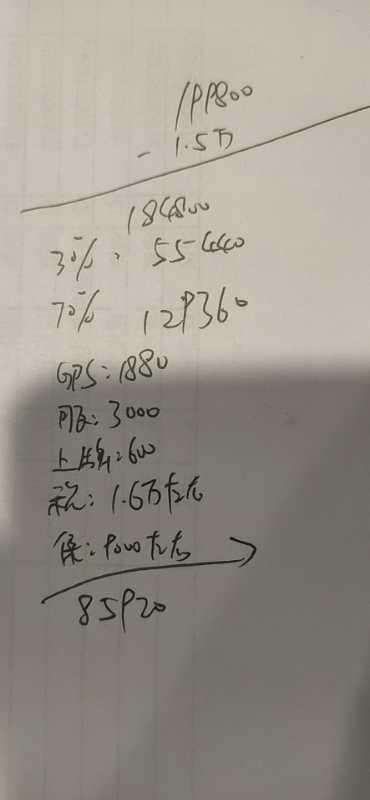 199800
- 1.5万
184800
30%. 55440
70% 129360
GPS:1880
服:3000
上牌:600
税:1.6万左右
保:9000左右
85920